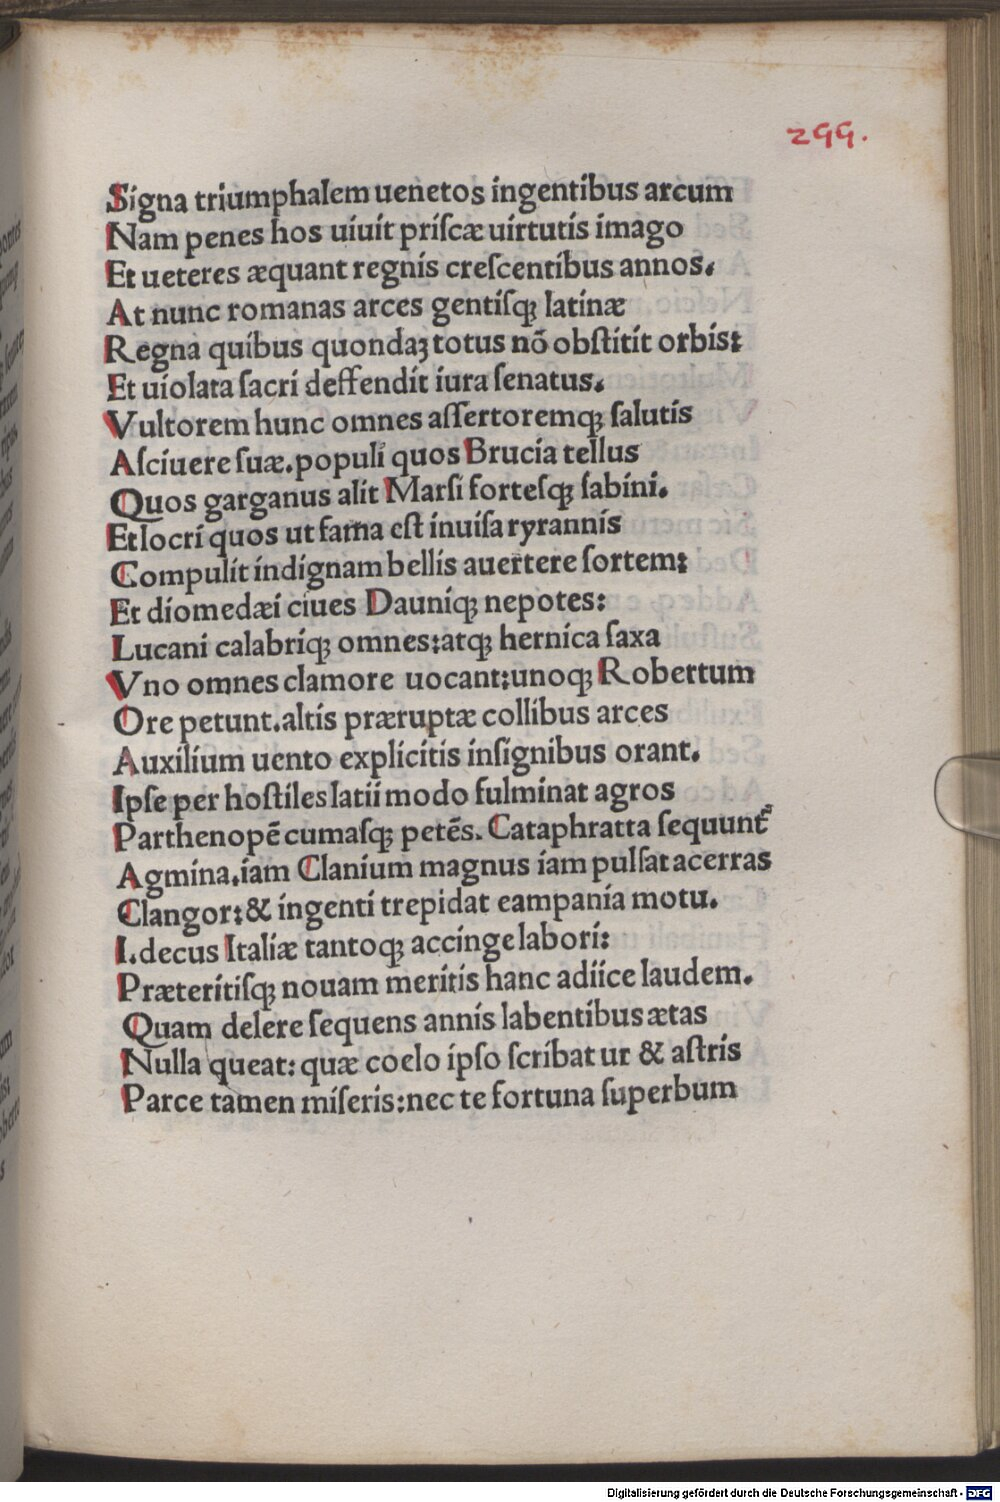 299.
Signa triumphalem uenetos ingentibus arcum
Nam penes hos uiuit priſcæ uirtutis imago
Et ueteres æquant regnis creſcentibus annos.
At nunc romanas arces gentiſqꝫ latinæ
Regna quibus quondaꝫ totus nō obſtitit orbis:
Et uiolata ſacri deffendit iura ſenatus.
Vultorem hunc omnes aſſertoremqꝫ ſalutis
Aſciuere ſuæ.populi quos Brucia tellus
Quos garganus alit Marſi forteſqꝫ ſabini.
Et locri quos ut fama eſt inuiſa ryrannis
Compulit indignam bellis auertere ſortem:
Et diomedæi ciues Dauniqꝫ nepotes:
Lucani calabriqꝫ omnes:atqꝫ hernica ſaxa
Vno omnes clamore uocant:unoqꝫ Robertum
Ore petunt.altis præruptæ collibus arces
Auxilium uento explicitis inſignibus orant.
Ipſe per hoſtiles latii modo fulminat agros
Parthenopē cumaſqꝫ petēs. Cataphratta ſequunt᷑
Agmina.iam Clanium magnus iam pulſat acerras
Clangor:& ingenti trepidat eampania motu.
I.decus Italiæ tantoqꝫ accinge labori:
Præteritiſqꝫ nouam meritis hanc adiice laudem.
Quam delere ſequens annis labentibus ætas
Nulla queat: quæ coelo ipſo ſcribat ur & aſtris
Parce tamen miſeris:nec te fortuna ſuperbum
Digitalisierung gefördert durch die Deutsche Forschungsgemeinschaft - DFG